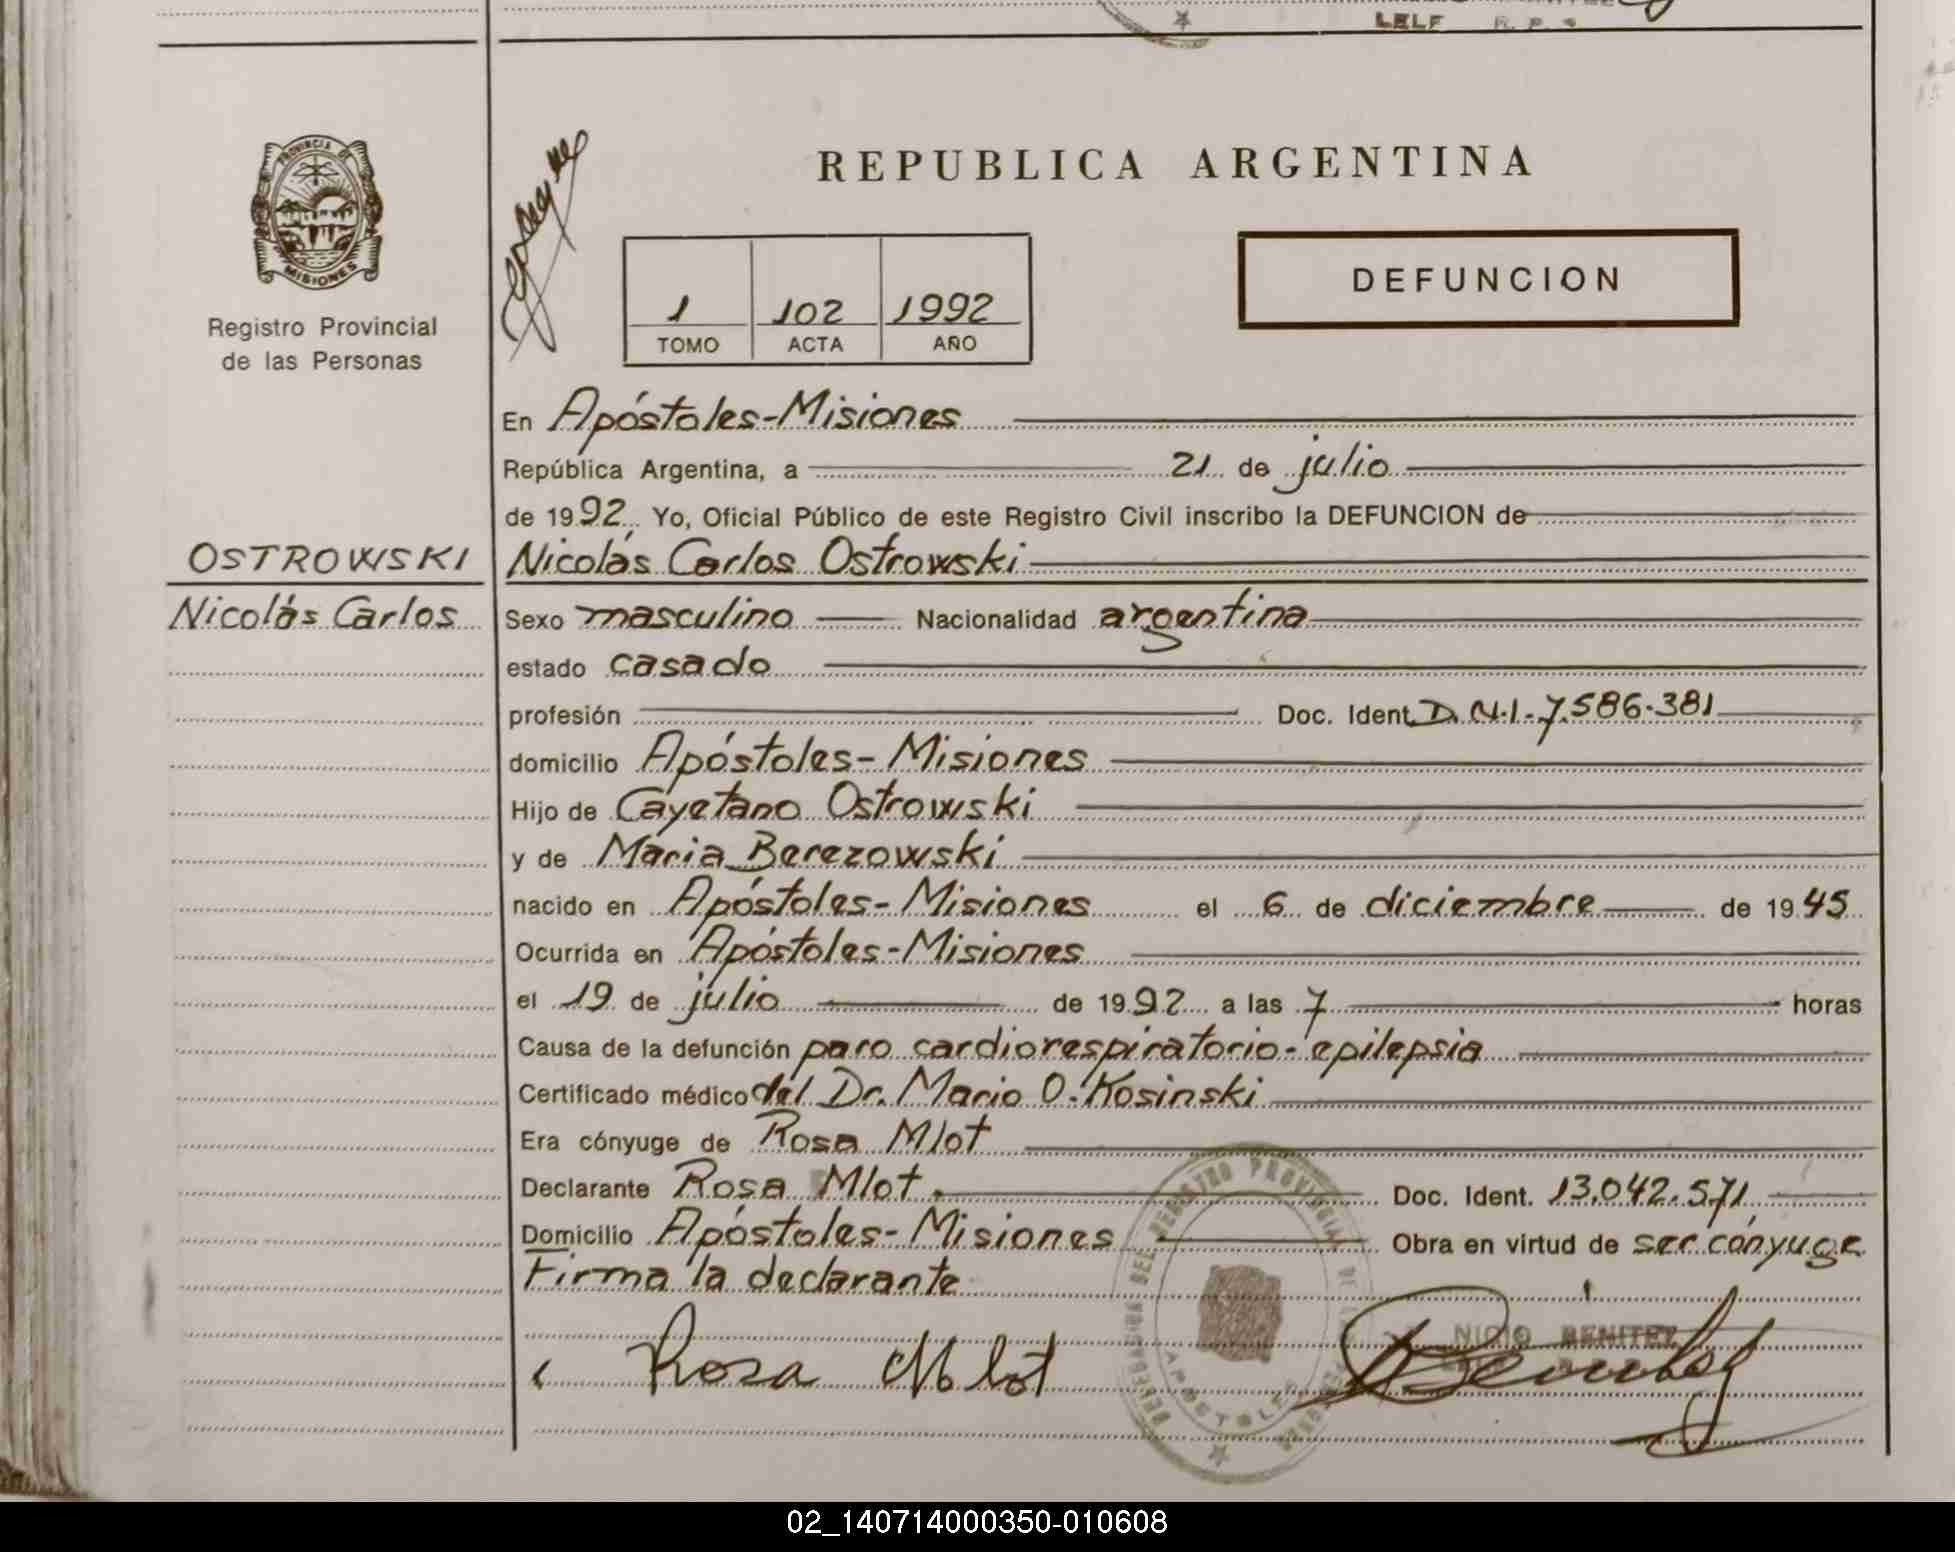 LELF R. P. S
PROVINCIA DE
MISIONES
Registro Provincial
de las Personas
REPUBLICA ARGENTINA
1 102 1992
TOMO ACTA AÑO
DEFUNCION
En Apóstoles-Misiones
República Argentina, a 21 de julio
de 1992 Yo, Oficial Público de este Registro Civil inscribo la DEFUNCION de
OSTROWSKI
Nicolás Carlos Ostrowski
Nicolás Carlos
Sexo masculino Nacionalidad argentina
estado casado
profesión Doc. Ident. D.N.I-7.586.381
domicilio Apóstoles-Misiones
Hijo de Cayetano Ostrowski
y de Maria Berezowski
nacido en Apóstoles-Misiones el 6 de diciembre de 1945
Ocurrida en Apóstoles-Misiones
el 19 de julio de 1992 a las 7 horas
Causa de la defunción paro cardiorespiratorio-epilepsia
Certificado médico del Dr. Mario O. Kosinski
Era cónyuge de Rosa Mlot
Declarante Rosa Mlot. Doc. Ident. 13.042.571
Domicilio Apóstoles-Misiones Obra en virtud de ser cónyuge
Firma la declarante
Rosa Mlot
NICIO BENITEZ
DELEGACION DEL REGISTRO PROVINCIAL DE
APOSTOLES
02_140714000350-010608